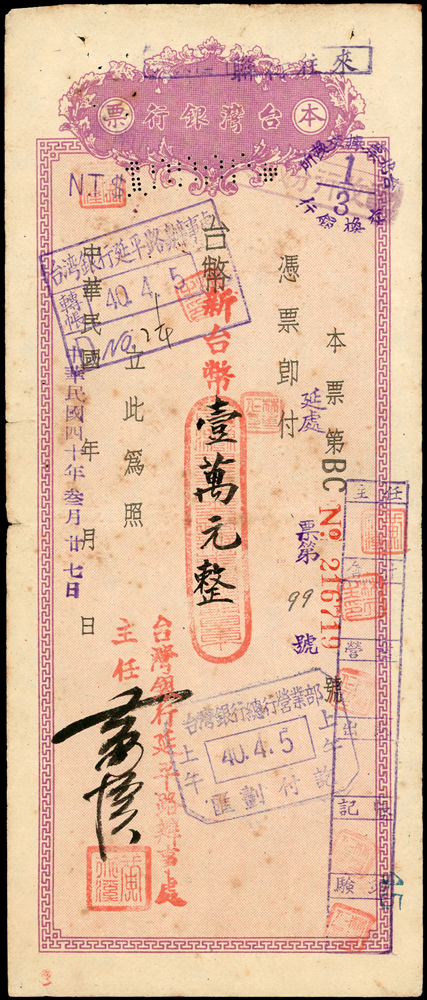 來往行聯
本 台灣銀行 票
NT$
台北票據交換所
1/3
交換銀行
本票第BC No 216719 號
延處票第 99 號
憑票即付
台幣新台幣壹萬元整
立此為照
中華民國 年 月 日
中華民國四十年叁月廿七日
台灣銀行延平路辦事處
轉帳
40.4.5
No. 24
台灣銀行延平路辦事處
主任
台灣銀行總行營業部
上午 40.4.5 上午
匯劃付訖
主任
會計
營業
出
記帳
驗